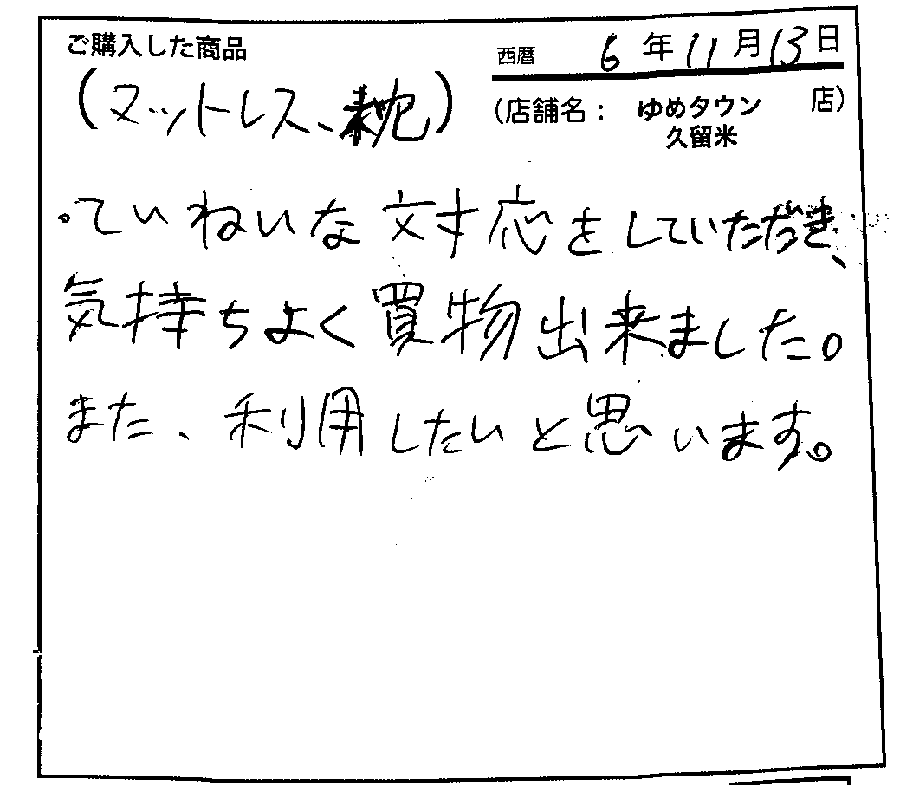 ご購入した商品
西暦 6年11月13日
(マットレス、枕)
(店舗名： ゆめタウン 店)
久留米
。ていねいな対応をしていただき、
気持ちよく買物出来ました。
また、利用したいと思います。